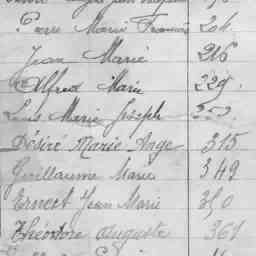 Pierre Marie François 204.
Jean Marie 216
Alfred Marie 229.
Louis Marie Joseph 253.
Désiré Marie Ange 315
Guillaume Marie 349
Ernest Jean Marie 350
Théodore Auguste 361